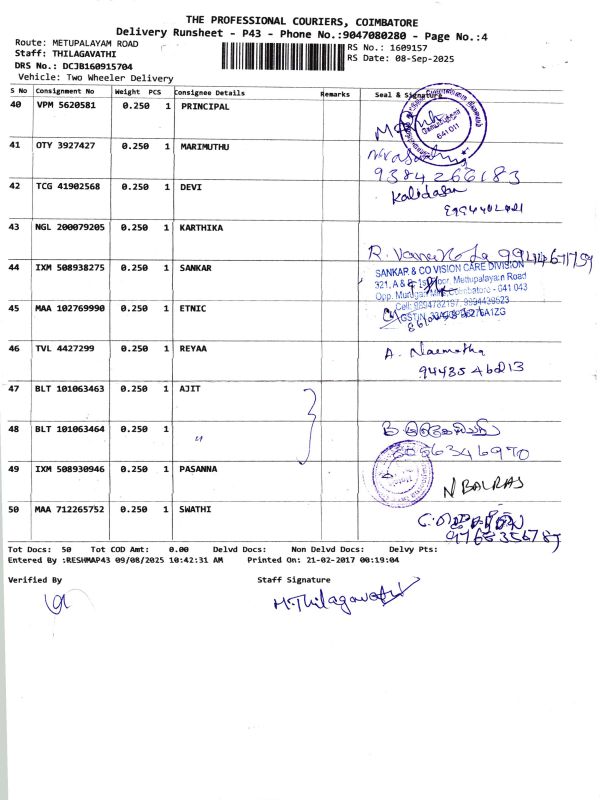 THE PROFESSIONAL COURIERS, COIMBATORE
Delivery Runsheet - P43 - Phone No.:9047080280 - Page No.:4
Route: METUPALAYAM ROAD
Staff: THILAGAVATHI
DRS No.: DCJB160915704
Vehicle: Two Wheeler Delivery
RS No.: 1609157
RS Date: 08-Sep-2025
S No Consignment No Weight PCS Consignee Details Remarks Seal & Signature
40 VPM 5620581 0.250 1 PRINCIPAL
641 011
41 OTY 3927427 0.250 1 MARIMUTHU
9384266183
42 TCG 41902568 0.250 1 DEVI Kalidasan
43 NGL 200079205 0.250 1 KARTHIKA
44 IXM 508938275 0.250 1 SANKAR
SANKAR & CO VISION CARE DIVISION
Mettupalayam Road
641 043
45 MAA 102769990 0.250 1 ETNIC
46 TVL 4427299 0.250 1 REYAA A.
47 BLT 101063463 0.250 1 AJIT
48 BLT 101063464 0.250 1 "
49 IXM 508930946 0.250 1 PASANNA N BALRAJ
50 MAA 712265752 0.250 1 SWATHI
Tot Docs: 50 Tot COD Amt: 0.00 Delvd Docs: Non Delvd Docs: Delvy Pts:
Entered By :RESHMAP43 09/08/2025 10:42:31 AM Printed On: 21-02-2017 00:19:04
Verified By Staff Signature
M.Thilagavathi